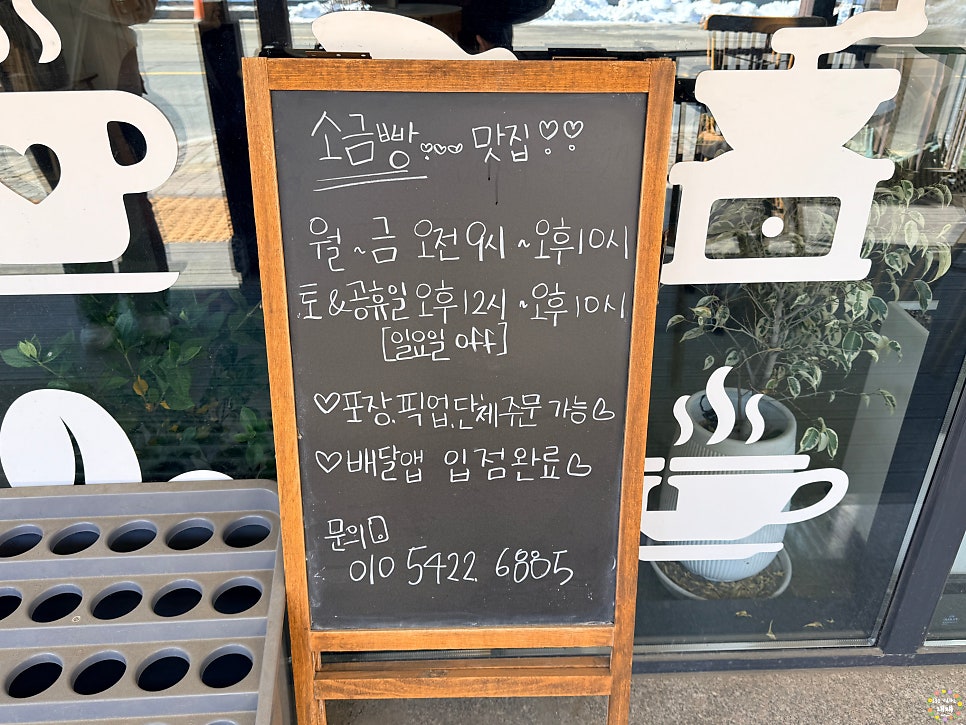 소금빵♡♡♡ 맛집♡♡
월~금 오전 9시 ~오후10시
토&공휴일 오후12시 ~오후10시
[일요일 off]
♡포장.픽업.단체주문 가능♡
♡배달앱 입점완료♡
문의
010 5422 6885